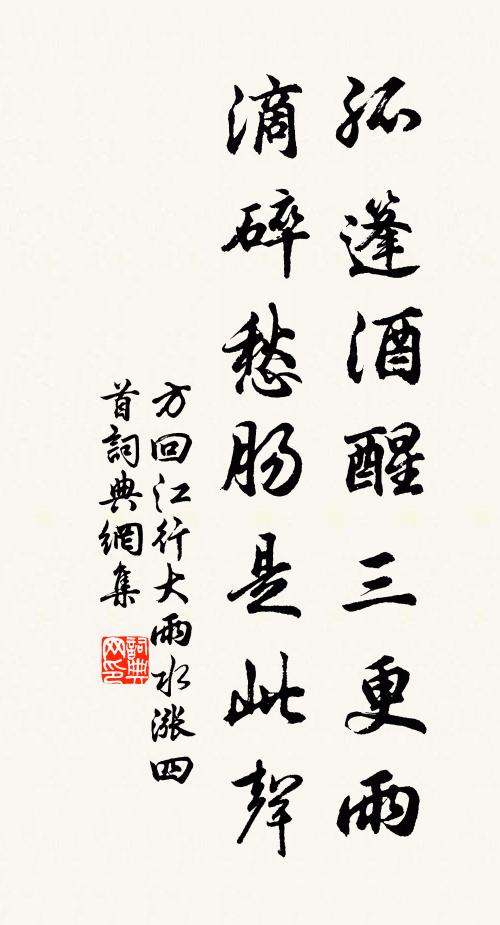 孤蓬酒醒三更雨
滴碎愁肠是此聲
方回江行大雨水漲四
首詞典網集
詞典網印